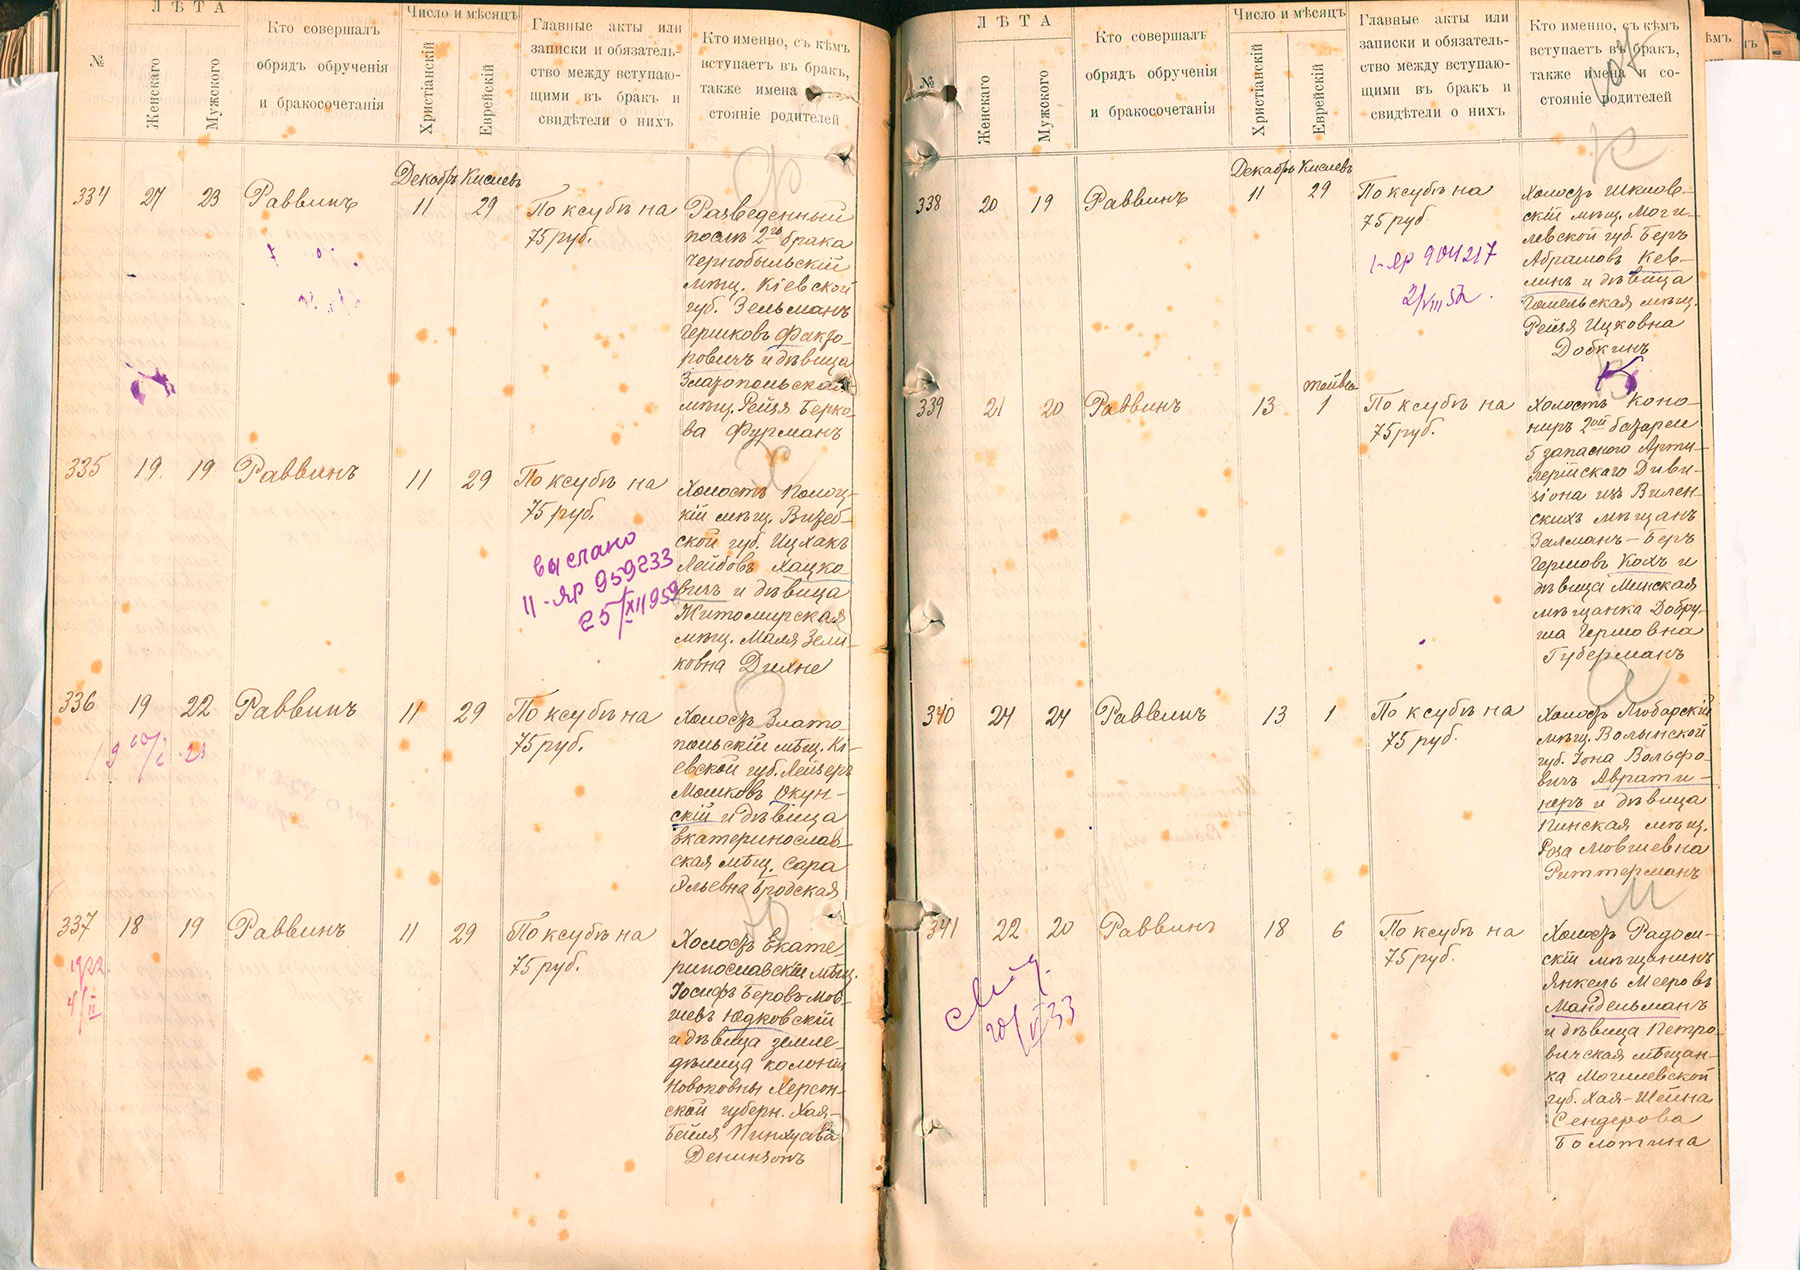 ЛѢТА
Число и мѣсяцъ
№
Женскаго
Мужского
Кто совершалъ
обрядъ обрученія
и бракосочетанія
Христіанскій
Еврейскій
Главные акты или
записки и обязатель-
ство между вступаю-
щими въ бракъ и
свидѣтели о нихъ
Кто именно, съ кѣмъ
вступаетъ въ бракъ,
также имена
стояніе родителей
Декабрь Кислевъ
334 27 23 Раввинъ 11 29 По ксубѣ на
75 руб.
Разведенный
послѣ 2го брака
Чернобыльскій
мѣщ. Кіевской
губ. Зельманъ
Гершковъ Факто-
ровичъ и дѣвица
Златопольская
мѣщ. Рейзя Берко-
ва Фурманъ
335 19 19 Раввинъ 11 29 По ксубѣ на
75 руб.
выслано
II-ЯР 959233
25/XII 959
Холостъ Полоц-
кій мѣщ. Витеб-
ской губ. Ицхакъ
Лейбовъ Хацко-
вичъ и дѣвица
Житомирская
мѣщ. Маля Зель-
ковна Дилне
336 19 22 Раввинъ 11 29 По ксубѣ на
75 руб.
Холостъ Злато
польскій мѣщ. Кі-
евской губ. Лейзеръ
Мошковъ Окун-
скій и дѣвица
Екатеринослав-
ская мѣщ. Сара
Ильевна Бродская
337 18 19 Раввинъ 11 29 По ксубѣ на
75 руб.
1922
4/II
Холостъ Екате
ринославскій мѣщ.
Іосифъ Беровъ Мов-
шевъ Юдковскій
и дѣвица земле-
дѣлица колоніи
Новоковны Херсон-
ской губерн. Хая-
Бейля Пинхусова
Денинзонъ
ЛѢТА
Число и мѣсяцъ
№
Женскаго
Мужского
Кто совершалъ
обрядъ обрученія
и бракосочетанія
Христіанскій
Еврейскій
Главные акты или
записки и обязатель-
ство между вступаю-
щими въ бракъ и
свидѣтели о нихъ
Кто именно, съ кѣмъ
вступаетъ въ бракъ,
также имена и со-
стояніе родителей
107
К
Декабрь Кислевъ
338 20 19 Раввинъ 11 29 По ксубѣ на
75 руб.
I-ЯР 904217
2/VIII 52.
Холостъ Шклов-
скій мѣщ. Моги-
левской губ. Беръ
Абрамовъ Кев-
линъ и дѣвица
Гомельская мѣщ.
Рейзя Ицковна
Добкинъ
К
Тейвсъ
339 21 20 Раввинъ 13 1 По ксубѣ на
75 руб.
Холостъ Кано-
ниръ 2ой батареи
5 запасного Арти-
лерійскаго Диви-
зіона изъ Вилен-
скихъ мѣщанъ
Залманъ-Беръ
Гершовъ Кохъ и
дѣвица Минская
мѣщанка Добру-
ша Гершовна
Губерманъ
А
340 24 24 Раввинъ 13 1 По ксубѣ на
75 руб.
Холостъ Любарскій
мѣщ. Волынской
губ. Іона Вольфо-
вичъ Аврати-
неръ и дѣвица
Пинская мѣщ.
Роза Мовшевна
Риттерманъ
М
341 22 20 Раввинъ 18 6 По ксубѣ на
75 руб.
Холостъ Радом-
скій мѣщанинъ
Янкель Мееровъ
Мандельманъ
и дѣвица Петро-
вичская мѣщан-
ка Могилевской
губ. Хая-Шейна
Сендерова
Болотина